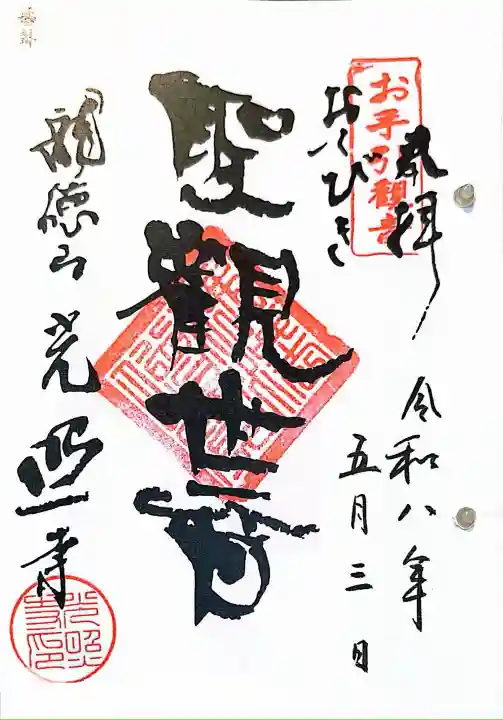 奉拝
令和八年
五月三日
お手引観音
おてびき
聖観世音
龍徳山
光照寺
光照寺印